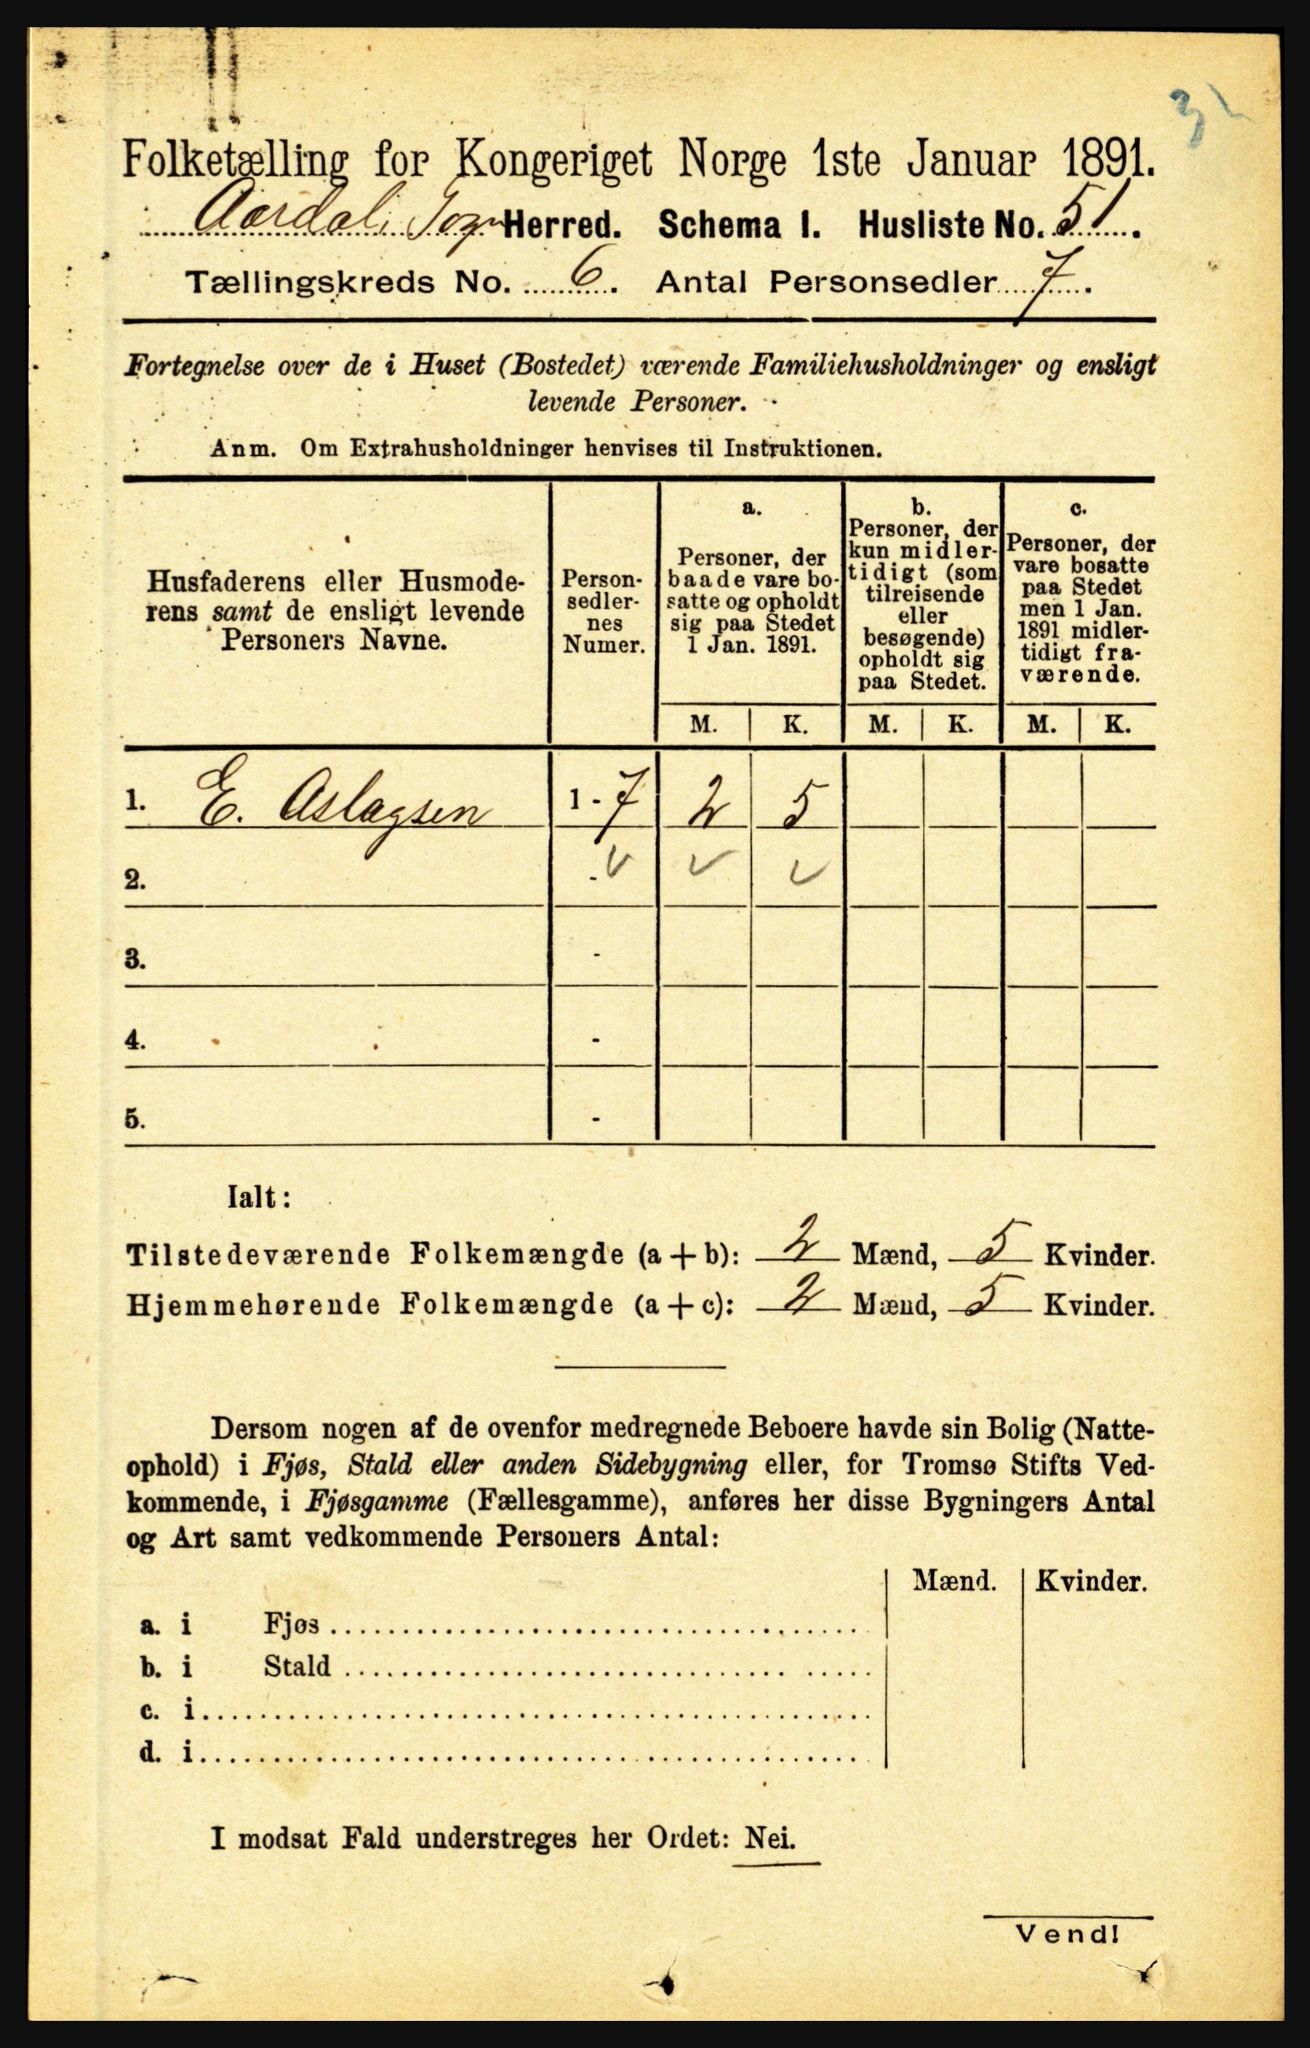 Folketælling for Kongeriget Norge 1ste Januar 1891.
Aardal i Sogn Herred. Schema I. Husliste No. 51.
Tællingskreds No. 6. Antal Personsedler 7.
Fortegnelse over de i Huset (Bostedet) værende Familiehusholdninger og ensligt
levende Personer.
Anm. Om Extrahusholdninger henvises til Instruktionen.
Husfaderens eller Husmode-
rens samt de ensligt levende
Personers Navne.
Person-
sedler-
nes
Numer.
a.
Personer, der
baade vare bo-
satte og opholdt
sig paa Stedet
1 Jan. 1891.
b.
Personer, der
kun midler-
tidigt (som
tilreisende
eller
besøgende)
opholdt sig
paa Stedet.
c.
Personer, der
vare bosatte
paa Stedet
men 1 Jan.
1891 midler-
tidigt fra-
værende.
M. K. M. K. M. K.
1. E. Aslagsen 1 - 7 2 5
2. -
3. -
4. -
5. -
Ialt:
Tilstedeværende Folkemængde (a+b): 2 Mænd, 5 Kvinder.
Hjemmehørende Folkemængde (a+c): 2 Mænd, 5 Kvinder.
Dersom nogen af de ovenfor medregnede Beboere havde sin Bolig (Natte-
ophold) i Fjøs, Stald eller anden Sidebygning eller, for Tromsø Stifts Ved-
kommende, i Fjøsgamme (Fællesgamme), anføres her disse Bygningers Antal
og Art samt vedkommende Personers Antal:
Mænd. Kvinder.
a. i Fjøs
b. i Stald
c. i
d. i
I modsat Fald understreges her Ordet: Nei.
Vend!